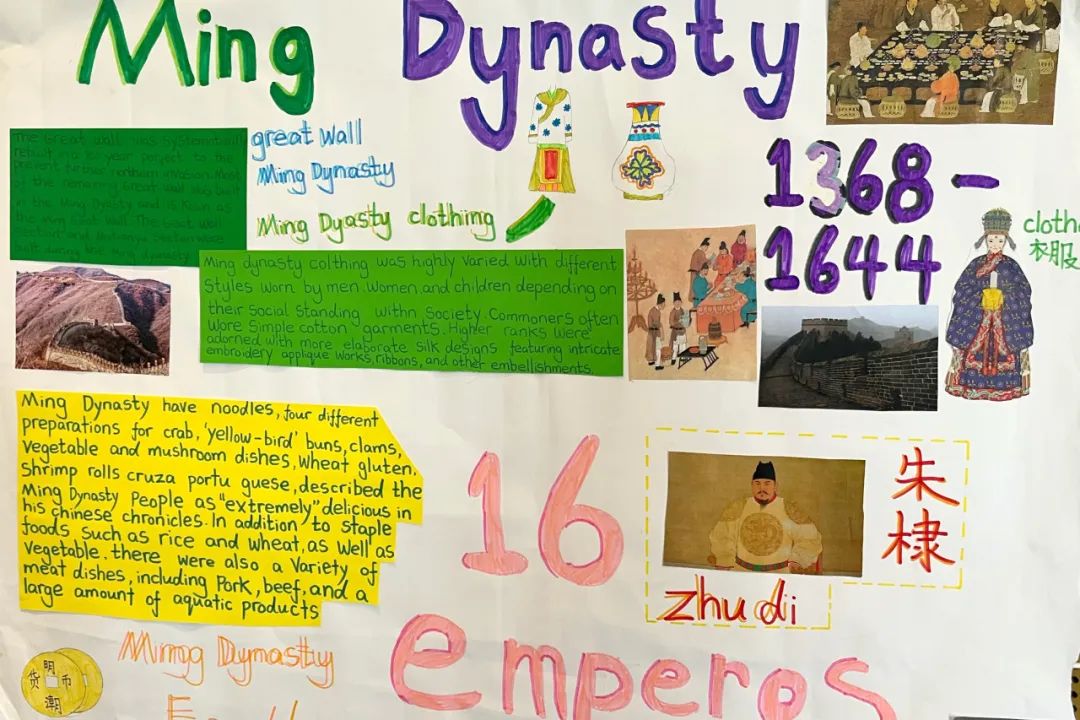 Ming Dynasty
The Great wall was systematically
rebuilt in a 150 year porject to the
prevent further northern invasion. Most
of the remaining Great wall was built
in the Ming Dynasty and is
the ming Great Wall. The Great wall
built during the ming dynasty
great wall
Ming Dynasty
Ming Dyasty clothing
1368-
1644
cloth
衣服
Ming dynasty colthing was highly varied with different
styles worn by men. women. and children depending on
their social standing withn society. Commoners often
wore simple cotton garments. Higher ranks were
adorned with more elaborate silk designs featuring intricate
embroidery applique works, ribbons, and other embellishments.
Ming Dynasty have noodles, four different
preparations for crab, 'yellow-bird' buns, clams,
vegetable and mushroom dishes, wheat gluten.
shrimp rolls cruza portu guese, described the
Ming Dynasty People as "extremely" delicious in
his chinese chronicles. In addition to staple
foods such as rice and wheat, as well as
vegetable. there were also a variety of
meat dishes, including Pork, beef, and a
large amount of aquatic products
16
emperos
朱
棣
zhu di
Mimog Daymastty
明
货 币
潮